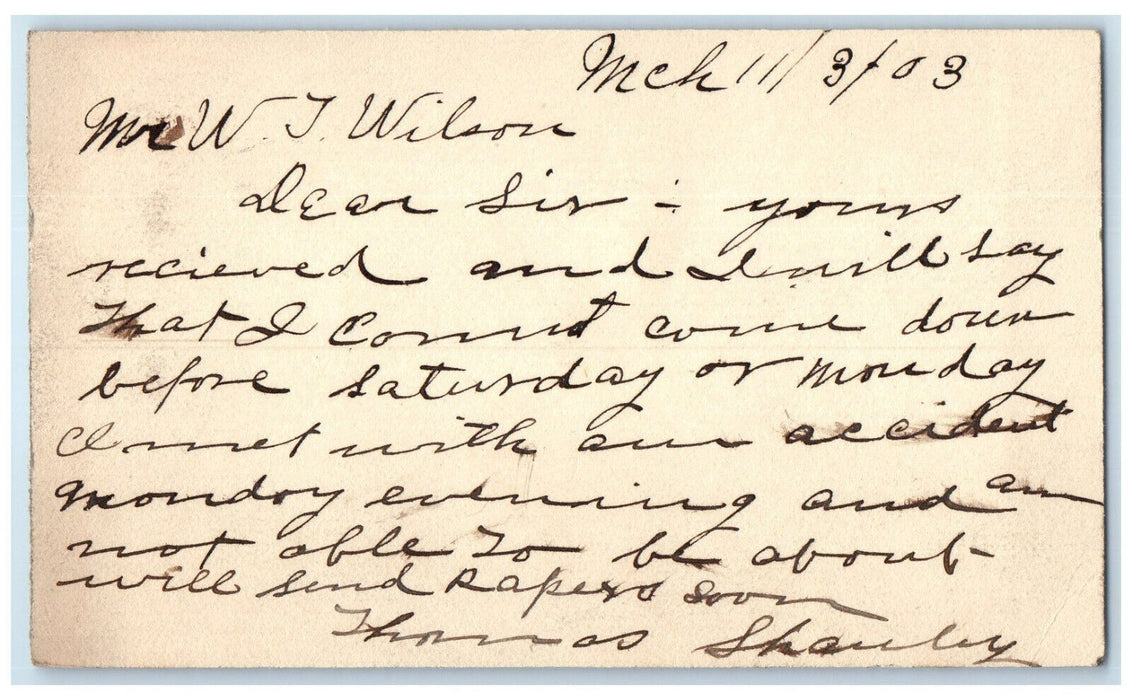 Mch 11/3/03
Mr W. T. Wilson
Dear Sir - yours
recieved and I will say
That I connot come down
before saturday or monday
I met with an accident
monday evening and am
not able to be about
will send papers soon
Thomas Shanley